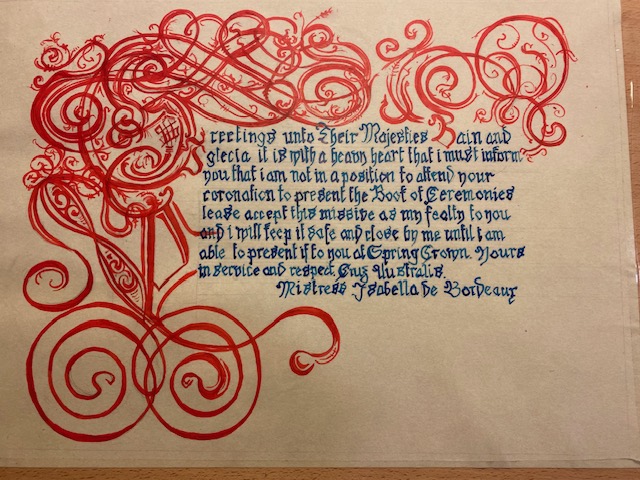 Greetings unto Their Majesties Bain and
glecia it is with a heavy heart that i must inform
you that i am not in a position to attend your
coronation to present the Book of Ceremonies
lease accept this missive as my fealty to you
and i will keep it safe and close by me until i am
able to present it to you at Spring Crown. Yours
in service and respect.
Mistress Isabella de Bordeaux